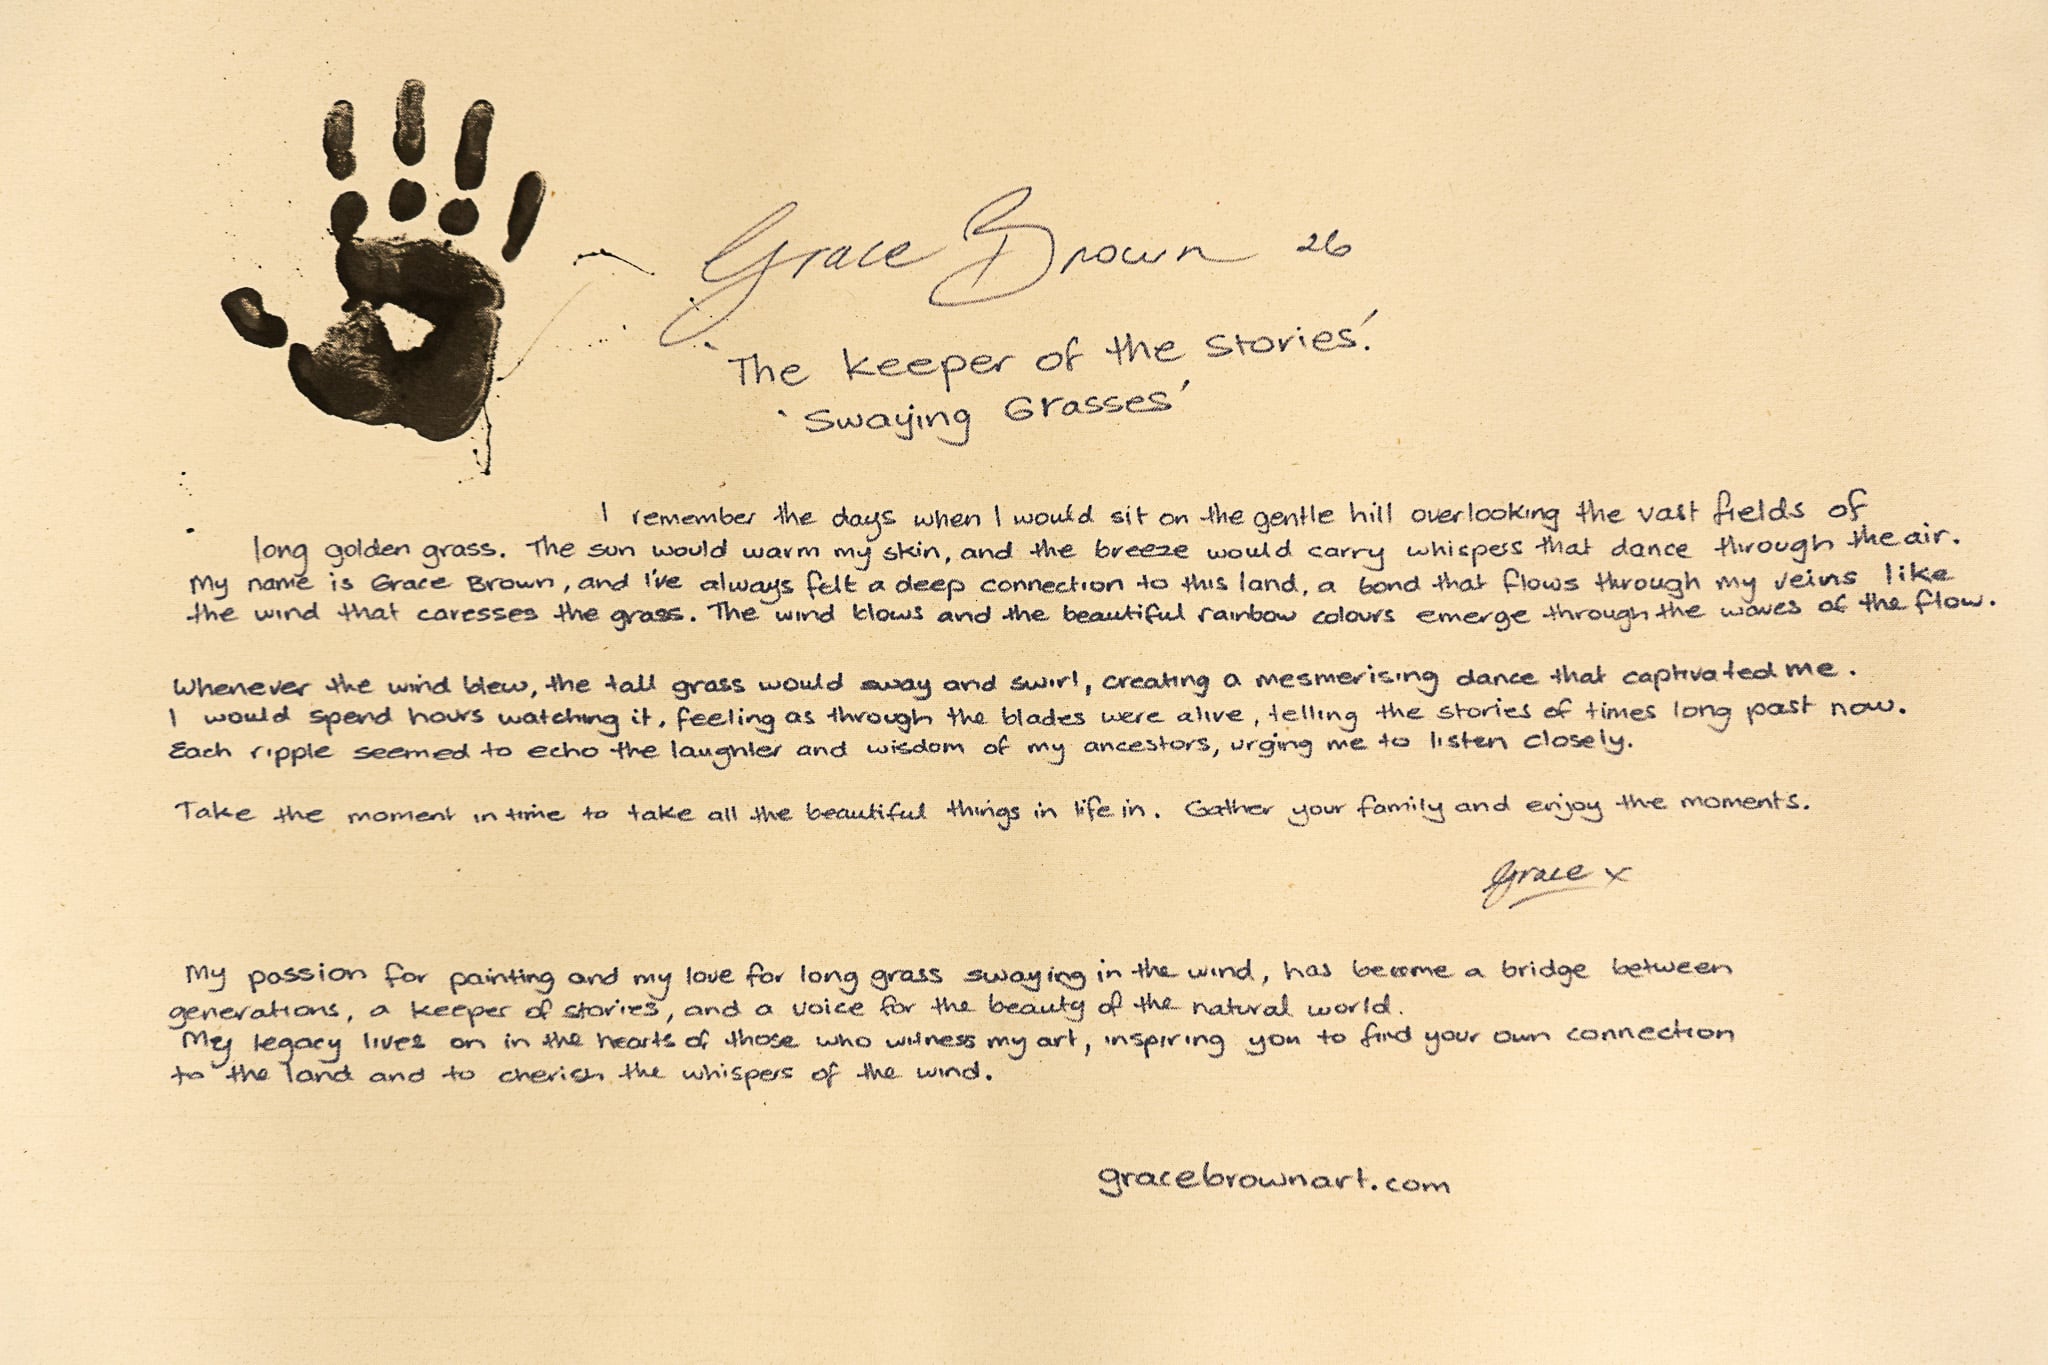 Grace Brown 26
'The Keeper of the Stories.'
'Swaying Grasses'
I remember the days when I would sit on the gentle hill overlooking the vast fields of
long golden grass. The sun would warm my skin, and the breeze would carry whispers that dance through the air.
My name is Grace Brown, and I've always felt a deep connection to this land, a bond that flows through my veins like
the wind that caresses the grass. The wind blows and the beautiful rainbow colours emerge through the waves of the flow.
Whenever the wind blew, the tall grass would sway and swirl, creating a mesmerising dance that captivated me.
I would spend hours watching it, feeling as through the blades were alive, telling the stories of times long past now.
Each ripple seemed to echo the laughter and wisdom of my ancestors, urging me to listen closely.
Take the moment in time to take all the beautiful things in life in. Gather your family and enjoy the moments.
Grace x
My passion for painting and my love for long grass swaying in the wind, has become a bridge between
generations, a keeper of stories, and a voice for the beauty of the natural world.
My legacy lives on in the hearts of those who witness my art, inspiring you to find your own connection
to the land and to cherish the whispers of the wind.
gracebrownart.com